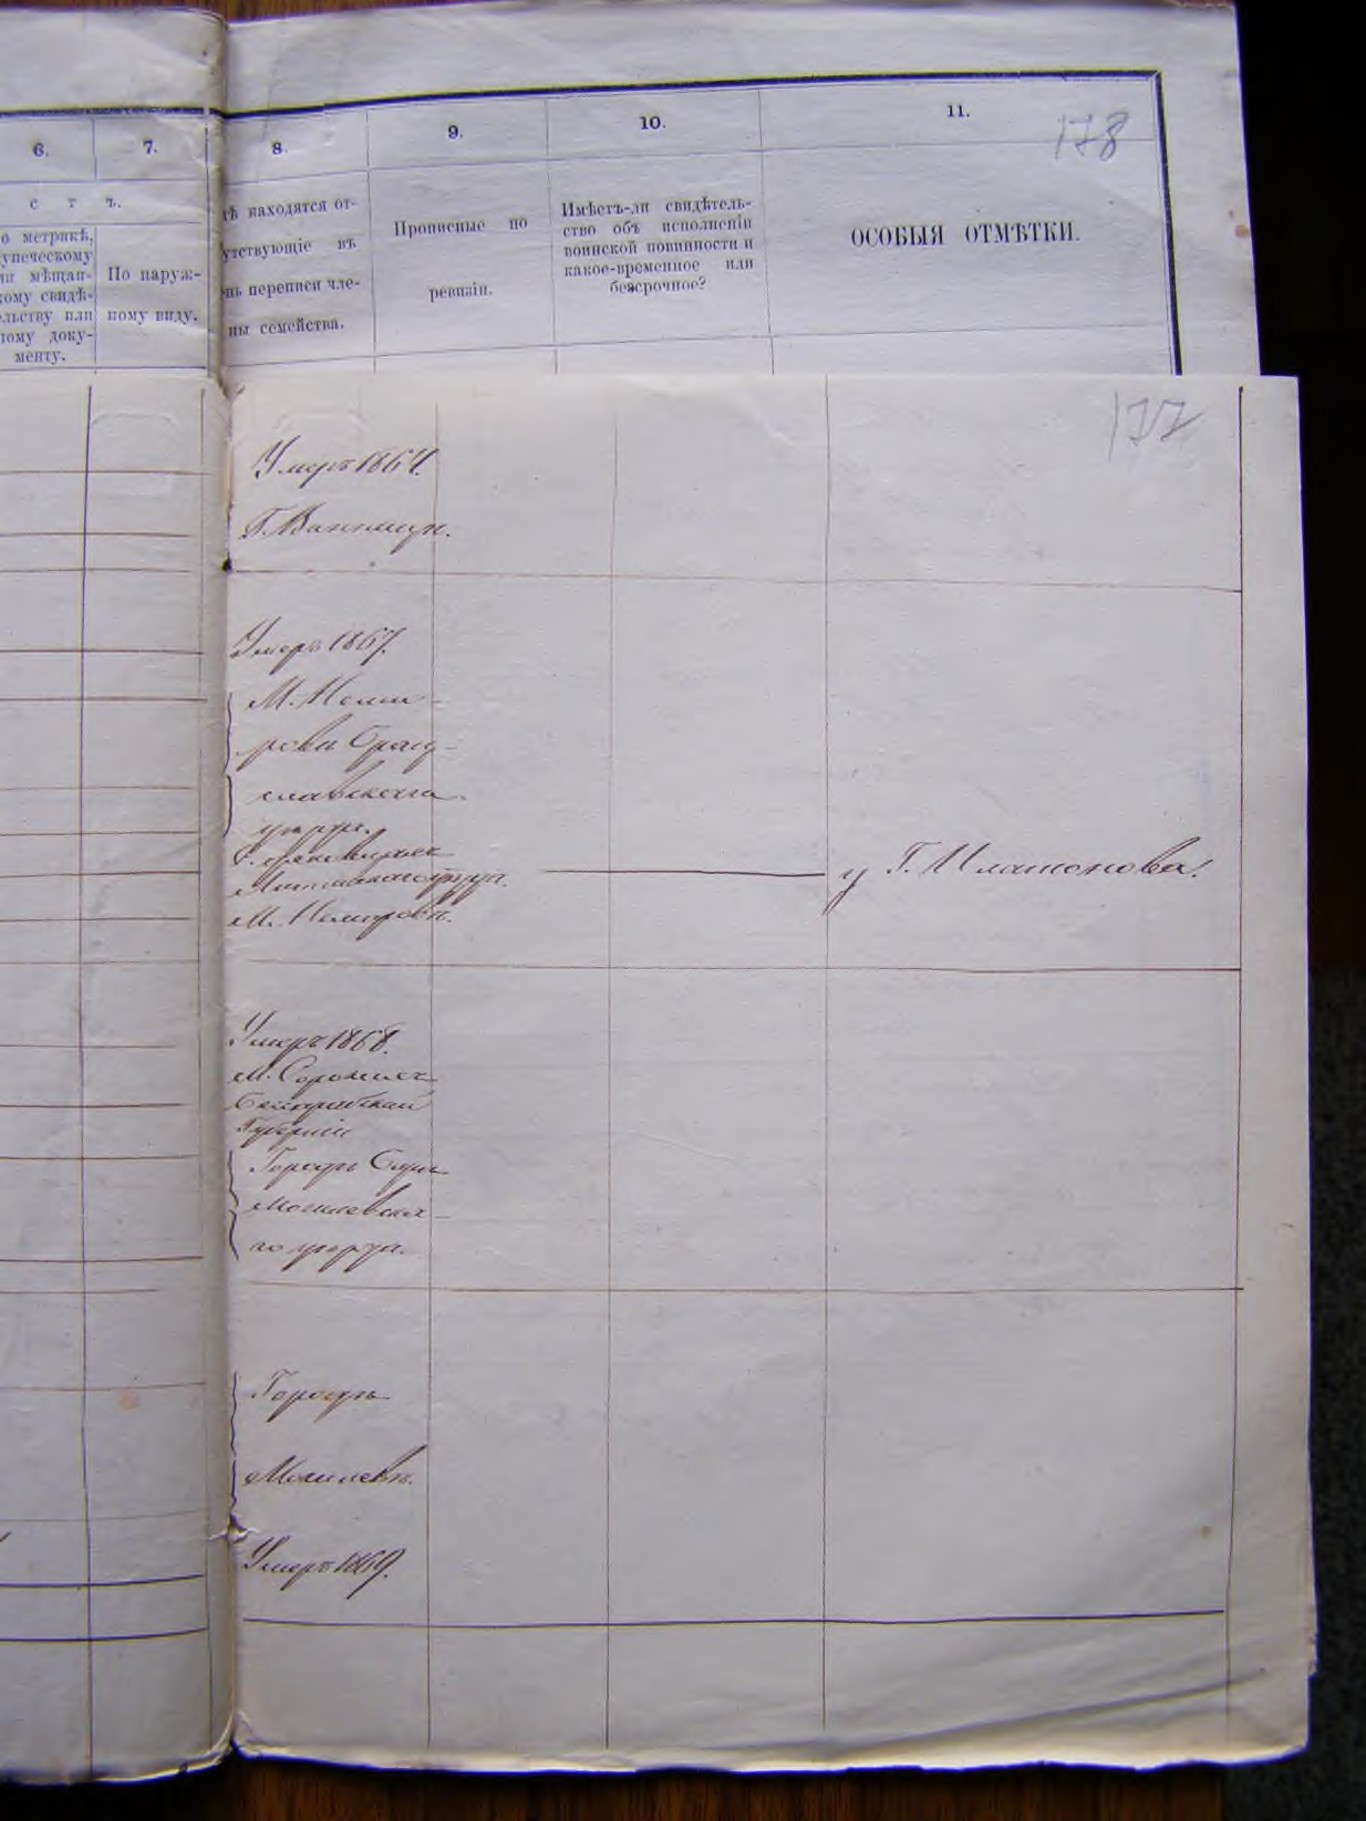 6.
7.
8.
9.
10.
11.
178
с т ъ.
о метрикѣ,
упеческому
ли мѣщан-
кому свидѣ-
льству или
ному доку-
менту.
По наруж-
ному виду.
дѣ находятся от-
утствующіе въ
нь переписи чле-
ны семейства.
Прописные по
ревизіи.
Имѣетъ-ли свидѣтель-
ство объ исполненіи
воинской повинности и
какое-временное или
безсрочное?
ОСОБЫЯ ОТМѢТКИ.
177
Умеръ 1864.
Умеръ 1867.
М. Неми-
рова Брац-
лавскаго
уѣзда.
у Г. Платонова.
М. Немировъ.
Умеръ 1868.
М.
Губерніи
Городъ
Могилевска-
го уѣзда.
Городъ
Могилевъ.
Умеръ 1869.